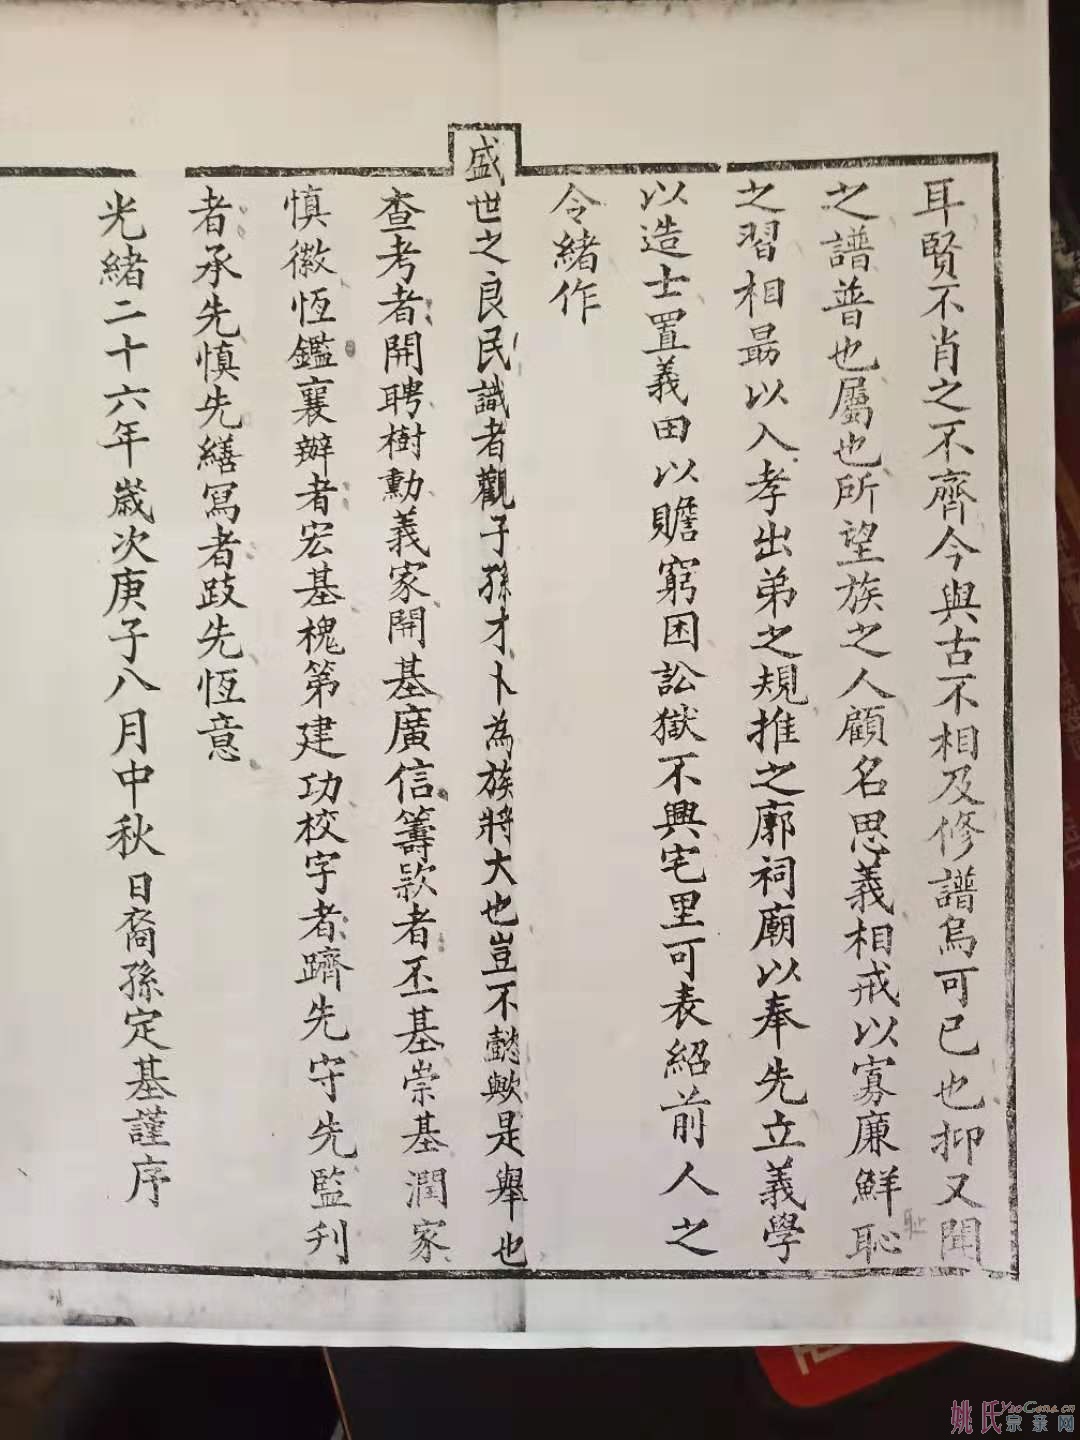 耳賢不肖之不齊今與古不相及修譜烏可已也抑又聞
之譜普也屬也所望族之人顧名思義相戒以寡廉鮮恥
耻
之習相勗以入孝出弟之規推之廓祠廟以奉先立義學
以造士置義田以贍窮困訟獄不興宅里可表紹前人之
令緒作
盛世之良民識者觀子孫才卜為族將大也豈不懿歟是舉也
查考者開聘樹勳義家開基廣信籌款者丕基崇基潤家
慎徽恆鑑襄辦者宏基槐第建功校字者躋先守先監刋
者承先慎先繕寫者跂先恆意
光緒二十六年歲次庚子八月中秋日裔孫定基謹序
姚氏YaoGens.cn
宗亲网